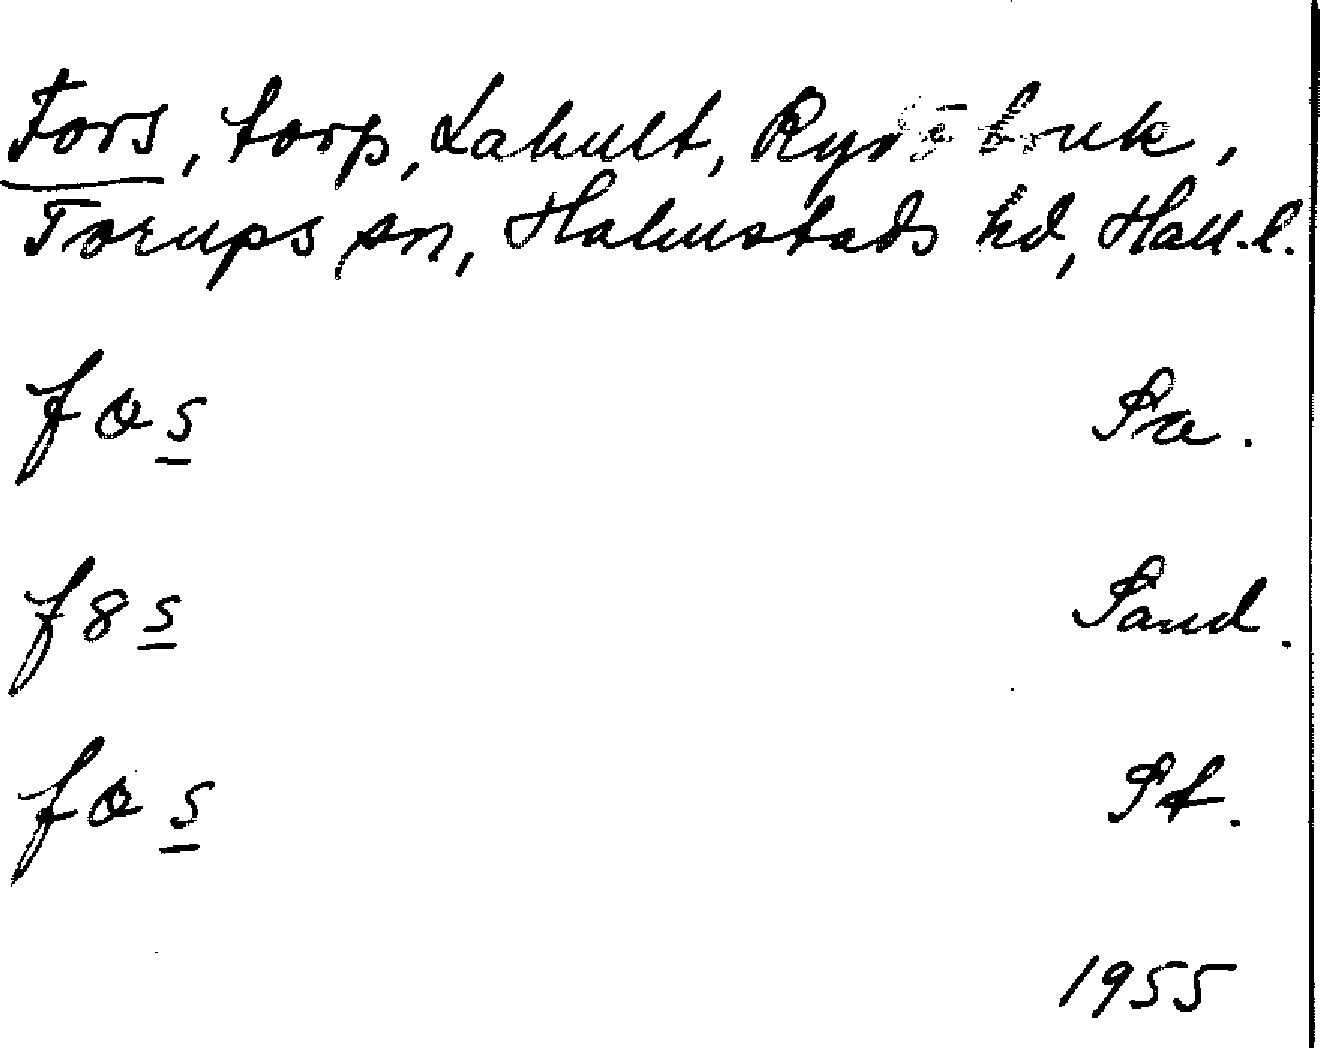 Fors, torp, Lahult, Rydöbruk,
Torups sn, Halmstads hd, Hall. l.
fɷs Pa.
f8s Pand.
fɷs Pf.
1955